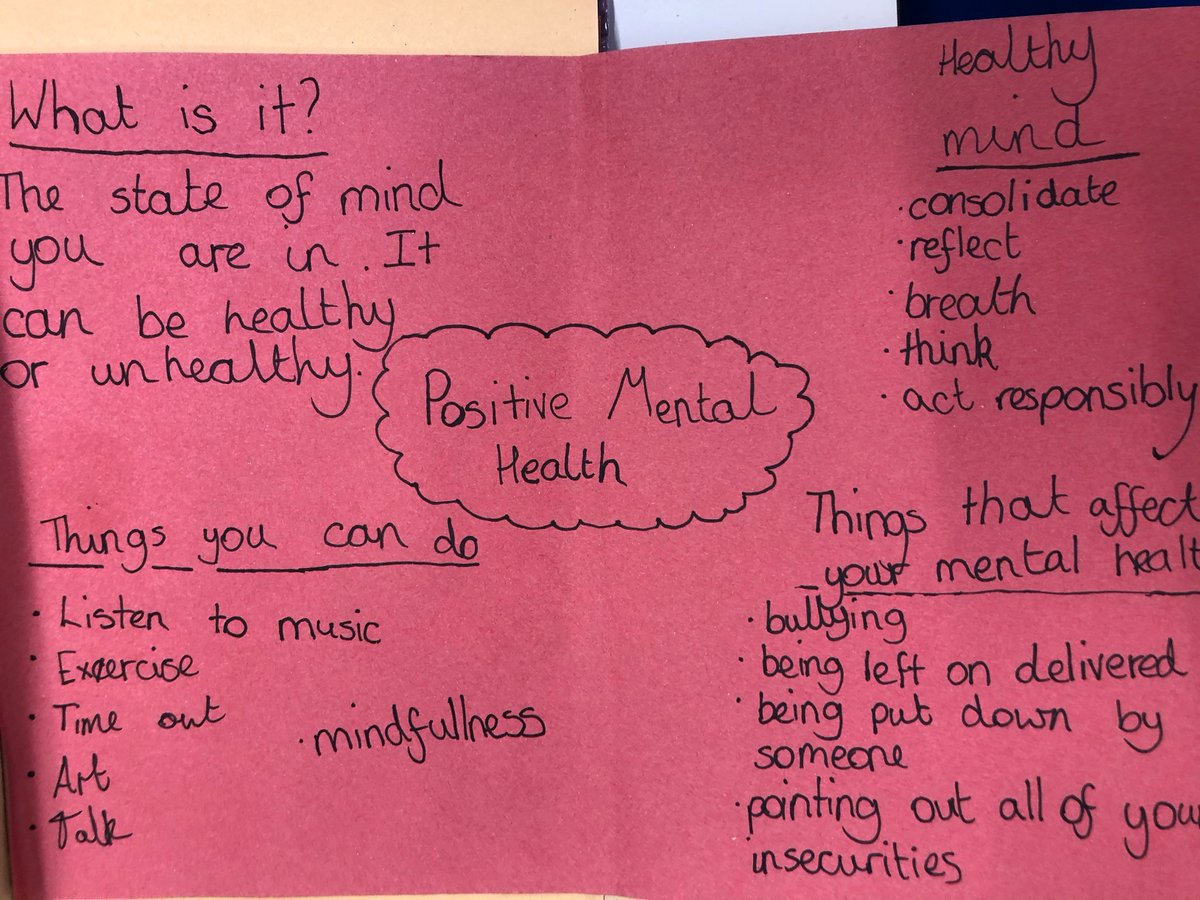 What is it?
The state of mind
you are in. It
can be healthy
or unhealthy.
Positive Mental
Health
Healthy
mind
· consolidate
· reflect
· breath
· think
· act responsibly
Things you can do
· Listen to music
· Excercise
· Time out
· mindfullness
· Art
· Talk
Things that affect
your mental healt
· bullying
· being left on delivered
· being put down by
someone
· pointing out all of your
insecurities